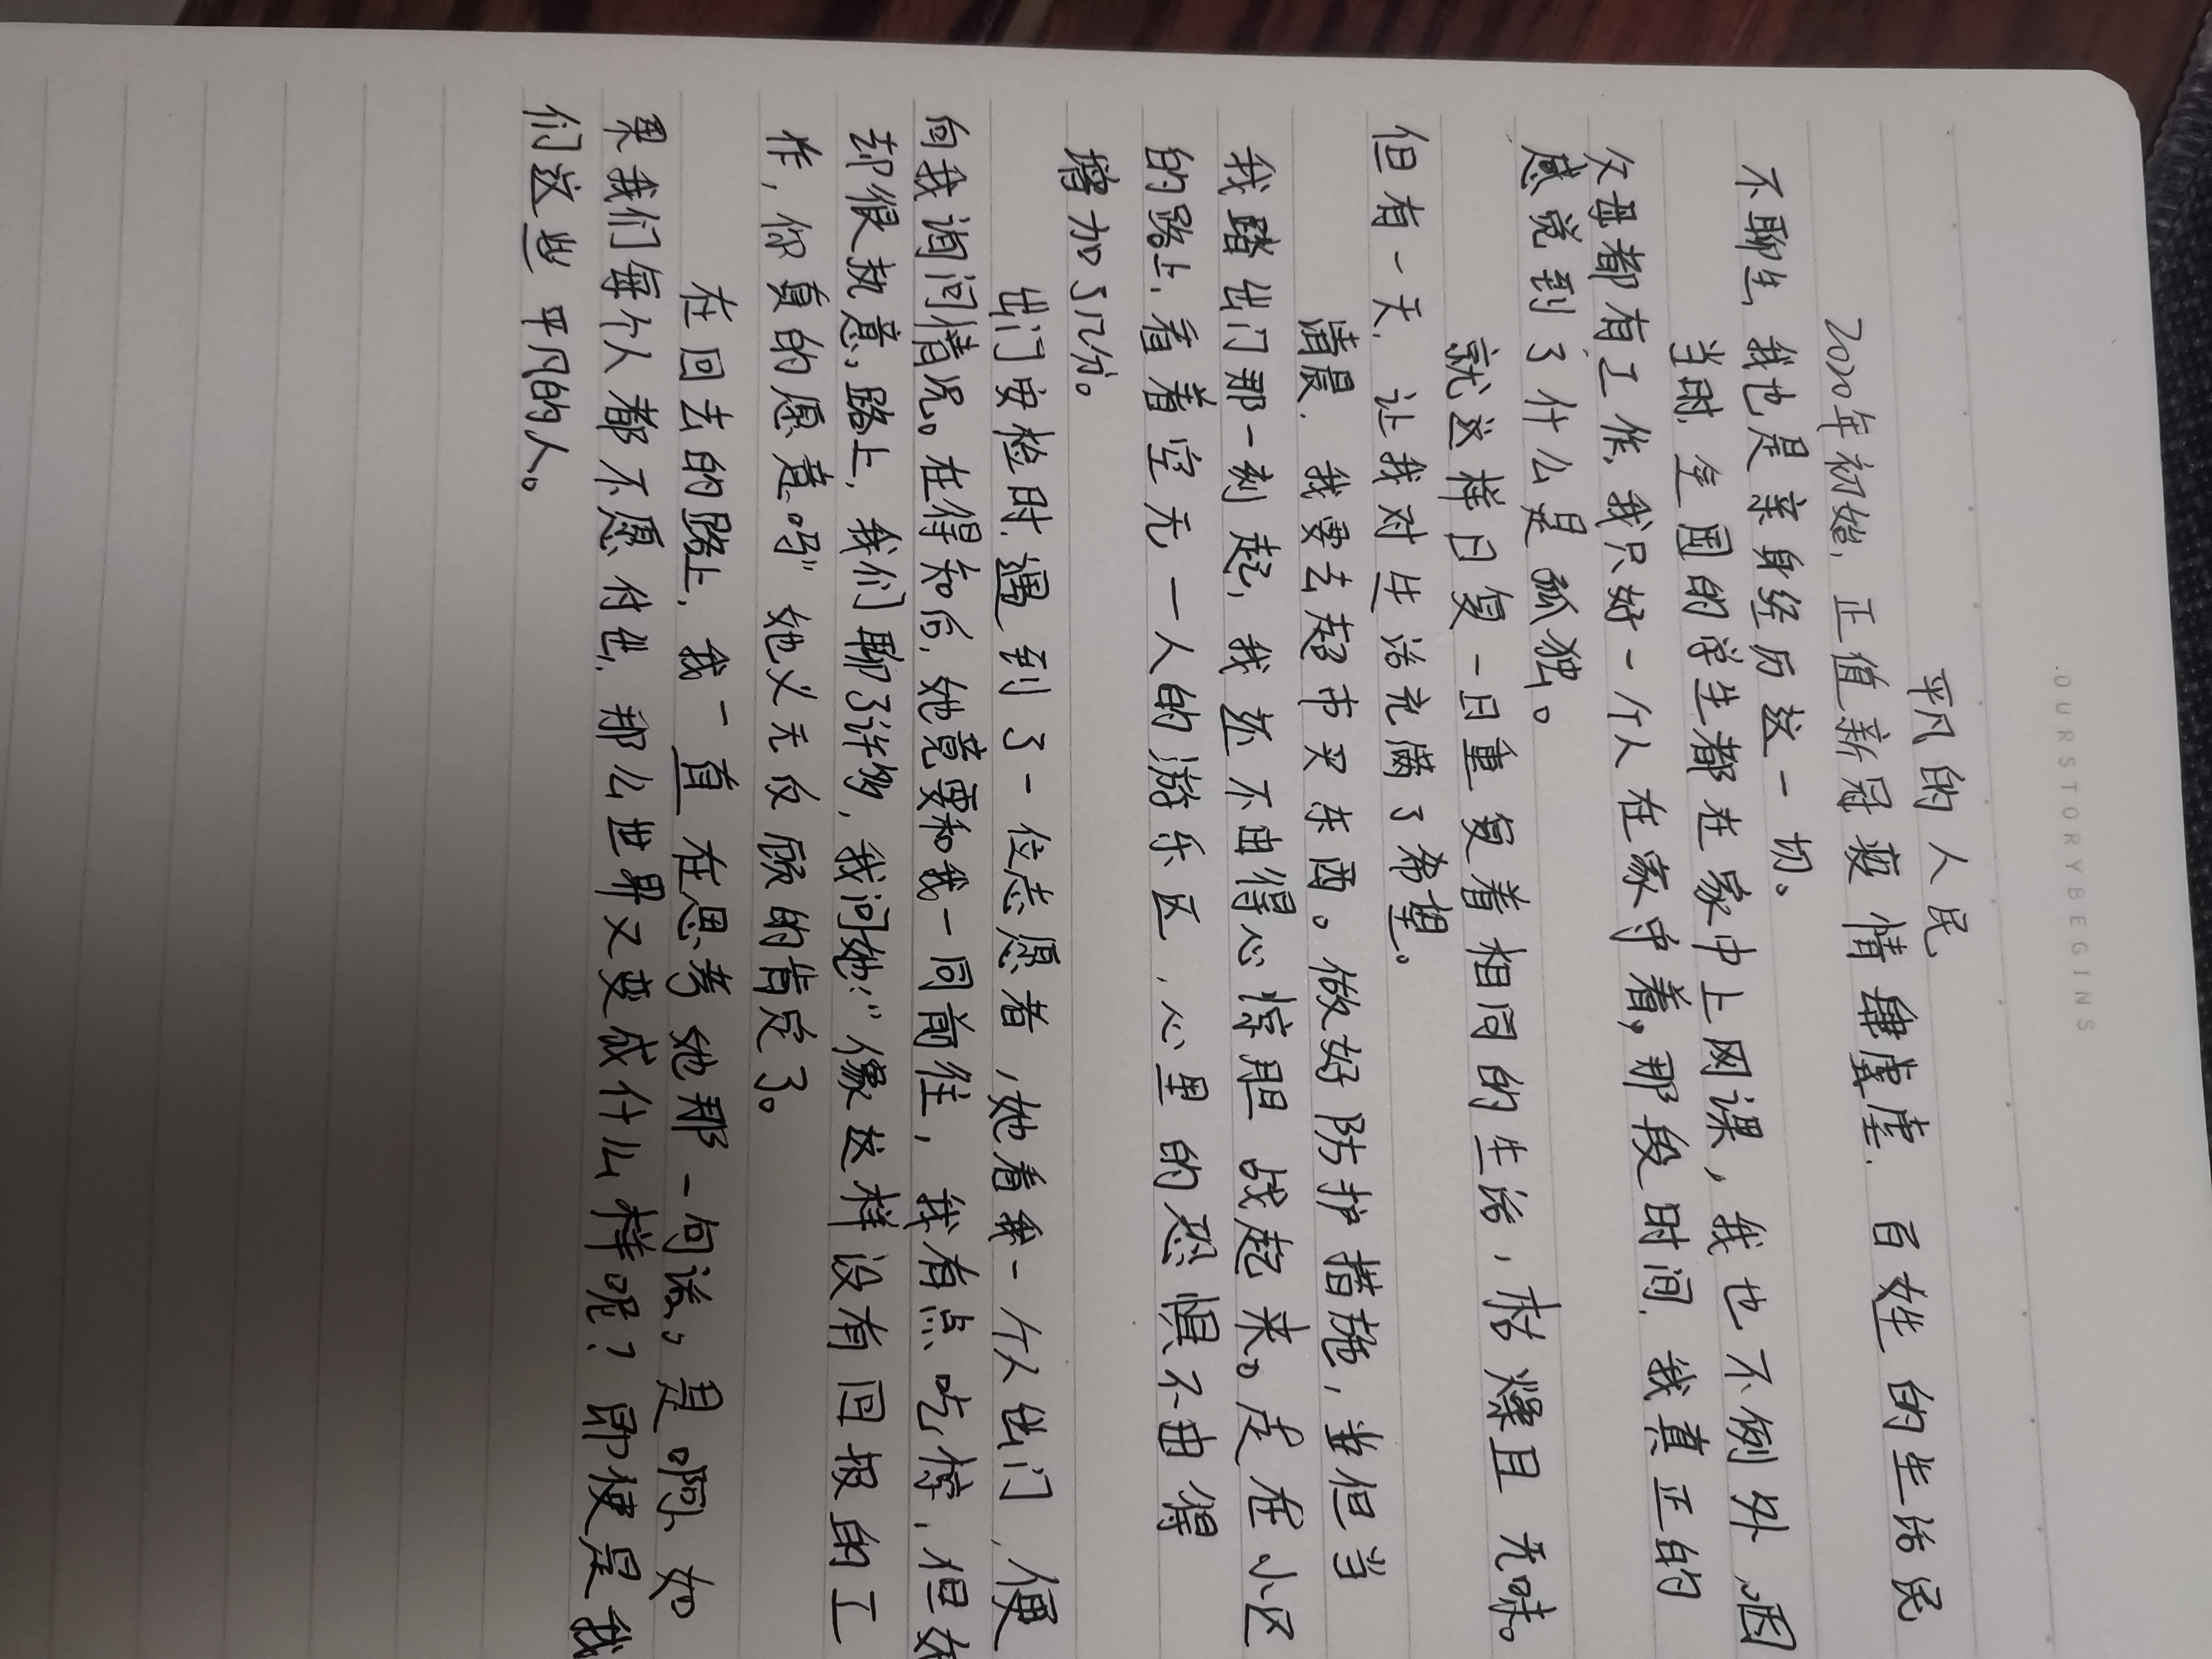 OURSTORYBEGINS
平凡的人民
2020年初始,正值新冠疫情肆虐,百姓的生活民
不聊生,我也是亲身经历这一切。
当时,全国的学生都在家中上网课,我也不例外,因
父母都有工作,我只好一个人在家守着,那段时间,我真正的
感觉到了什么是孤独。
就这样日复一日重复着相同的生活,枯燥且无味。
但有一天,让我对生活充满了希望。
清晨,我要去超市买东西。做好防护措施,当但当
我踏出门那一刻起,我还不由得心惊胆战起来。走在小区
的路上,看着空无一人的游乐区,心里的恐惧不由得
增加了几分。
出门安检时,遇到了一位志愿者,她看我一个人出门,便
向我询问情况。在得知后,她竟要和我一同前往,我有点吃惊,但她
却很执意。路上,我们聊了许多,我问她:“像这样没有回报的工
作,你真的愿意吗”她义无反顾的肯定了。
在回去的路上,我一直在思考她那一句话,是啊,如
果我们每个人都不愿付出,那么世界又变成什么样呢?即使是我
们这些平凡的人。